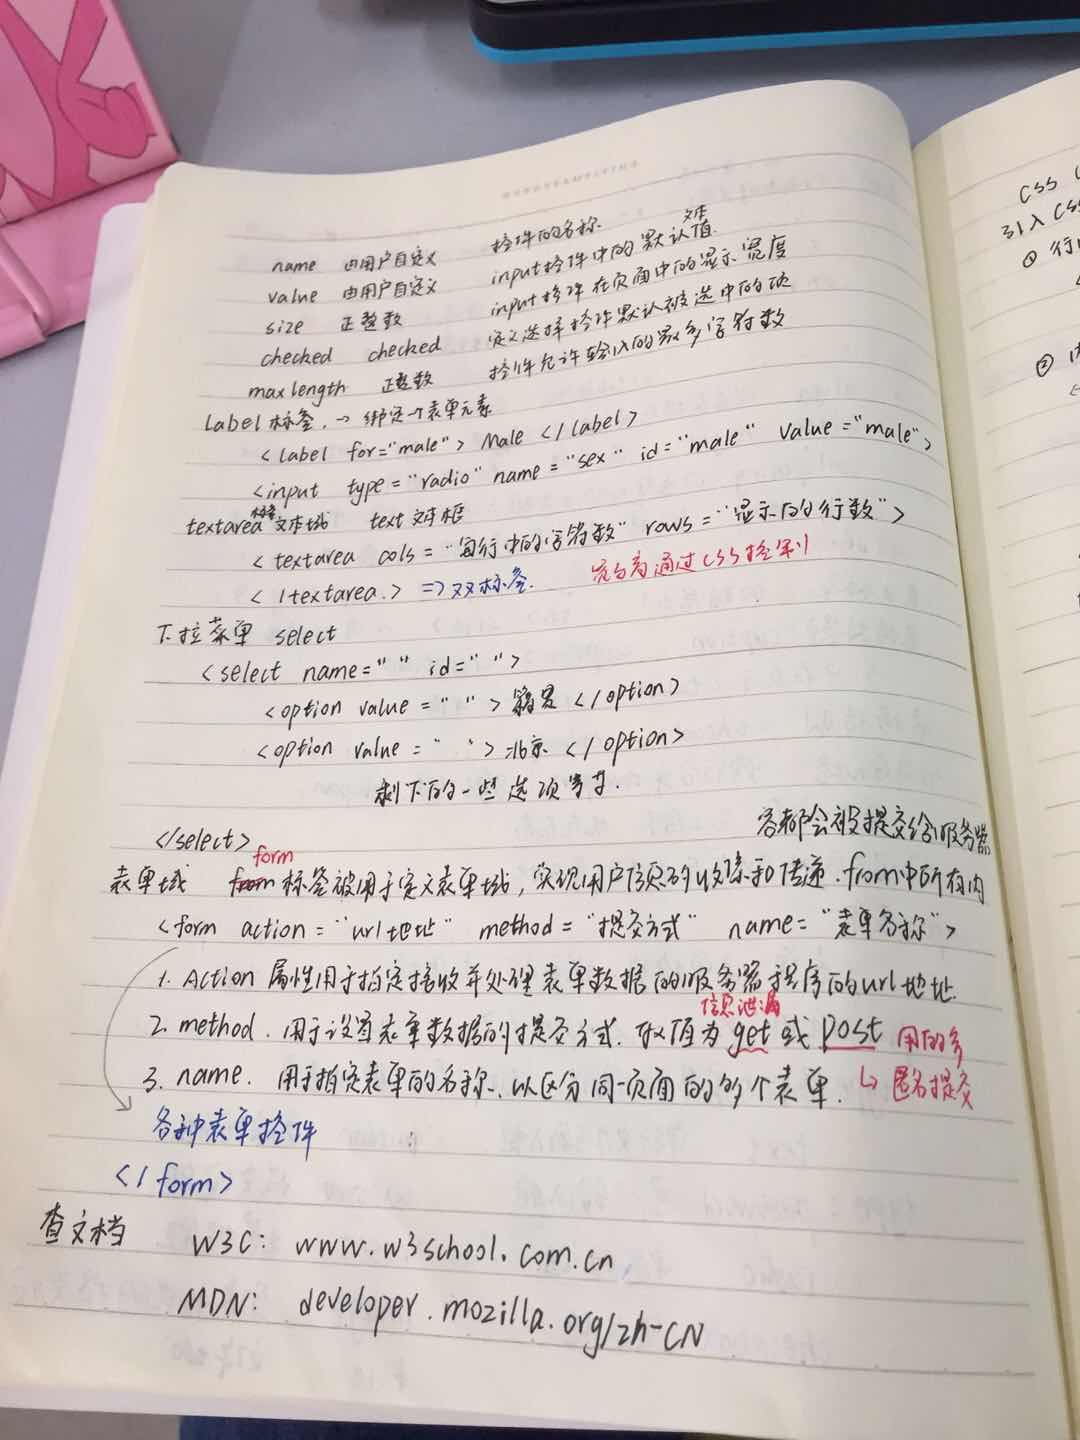 name 由用户自定义 控件的名称.
value 由用户自定义 input控件中的默认文本值.
size 正整数 input控件在页面中的显示宽度
checked checked 定义选择控件默认被选中的项
maxlength 正整数 控件允许输入的最多字符数
label 标签. → 绑定一个表单元素
<label for="male"> Male </label>
<input type="radio" name="sex" id="male" value="male">
textarea标签 文本域 text 文本框
<textarea cols="每行中的字符数" rows="显示的行数">
</textarea.> => 双标签. 宽和高通过CSS控制
下拉菜单 select
<select name=" " id=" ">
<option value=" "> 籍贯 </option>
<option value=" "> 北京 </option>
剩下的一些选项等等.
</select>
容都会被提交给服务器
表单域 form 标签被用于定义表单域, 实现用户信息的收集和传递. from中所有内
<form action="url地址" method="提交方式" name="表单名称">
1. Action 属性用于指定接收并处理表单数据的服务器程序的url地址
信息泄漏
2. method. 用于设置表单数据的提交方式. 取值为get或post 用的多
3. name. 用于指定表单的名称、以区分同一页面的多个表单. ↳ 匿名提交
各种表单控件
</form>
查文档 W3C: www.w3school.com.cn
MDN: developer.mozilla.org/zh-CN
CSS
引入CSS
① 行
②